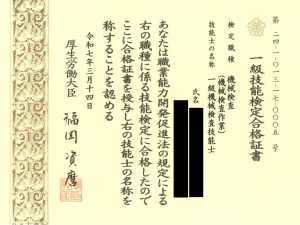 第二四-1-〇一三-一七-〇〇〇五号
一級技能検定合格証書
検定職種 機械検査
(機械検査作業)
技能士の名称 一級機械検査技能士
氏名
あなたは職業能力開発促進法の規定による
右の職種に係る技能検定に合格したので
ここに合格証書を授与し右の技能士の名称を
称することを認める
令和七年三月十四日
厚生労働大臣 福岡資麿